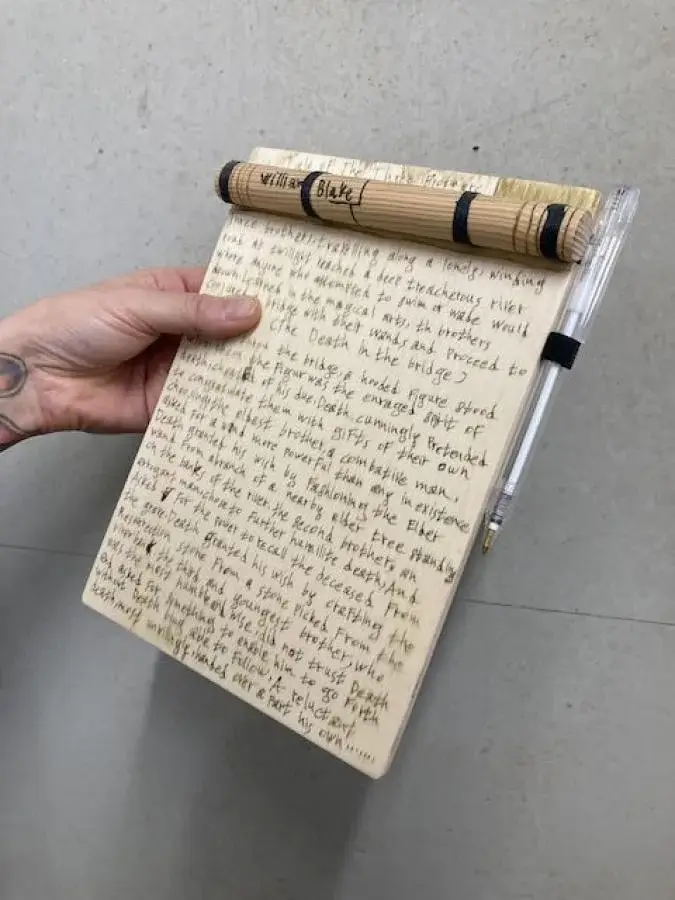 Tale of the three
William Blake
Three brothers, travelling along a lonely, winding
road at twilight reached a deep treacherous river
where anyone who attempted to swim or wade would
drown. Learned in the magical arts, th brothers
conjured a bridge with their wands and Proceed to
(The Death in the bridge)
upon the bridge, a hooded Figure stood
the Figur was the enraged spirit of
death, cheated of his due. Death cunningly Pretended
to congradulate them with gifts of their own
choosing. the eldest brother, a combatile man,
asked for a wand more powerful than any in existence
Death granted his wish by Fashioning the Elder
wand From a branch of a nearby elder tree standing
on the banks of the river. the second brother, an
arrogant man, chose to Further humilite death, And
Asked For the power to recall the deceased From
the grave. Death granted his wish by crafting the
Resurrection stone From a stone Picked From the
riverbank. the third and youngest brother, who
was the most humble and wise, did not trust Death
and asked For somethings to enable him to go Forth
without Death being able to Follow. A reluctant
Death, most unwillingly, handed over a Part his own......